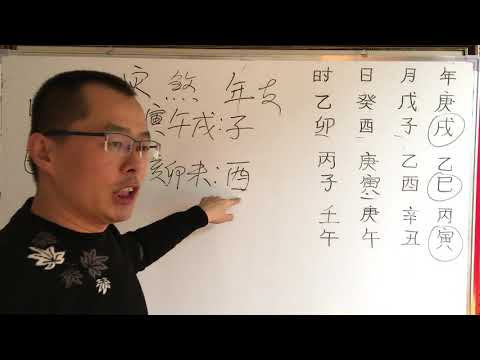 灾煞 年支
寅午戌:子
亥卯未:酉
时 日 月 年
乙 癸 戊 庚
卯 酉 子 戌
丙 庚 乙 乙
子 寅 酉 巳
壬 庚 辛 丙
午 午 丑 寅